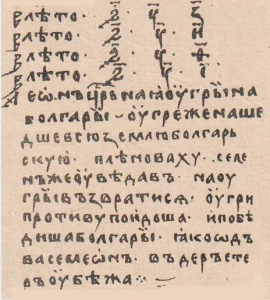 В лѣто · ҂ѕ҃ · у҃ · з҃
В лѣто · ҂ѕ҃ · у҃ · и҃
В лѣто · ҂ѕ҃ · у҃ · ѳ҃
В лѣто · ҂ѕ҃ · у҃ · і҃
Леѡнъ цр҃ь наꙗ оугры на
болгары · оугре же наше
дше всю землю болгарь
скую · плѣноваху · семе
нъ же оувѣдавъ · на оу
гры възвратисѧ · оугри
противу поидоша · и побѣ
диша болгары · ꙗко ѡд
ва семеѡнъ · въ деръсте
ръ оубѣжа ·:·